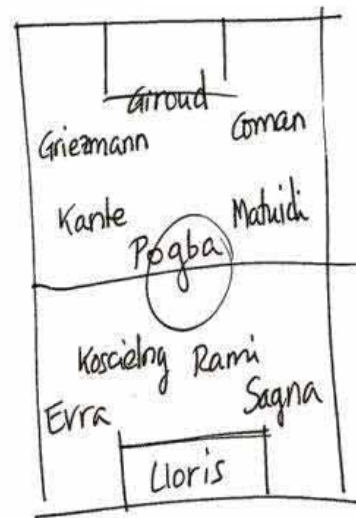 Giroud
Griezmann Coman
Kante Matuidi
Pogba
Koscielny Rami
Evra Sagna
Lloris